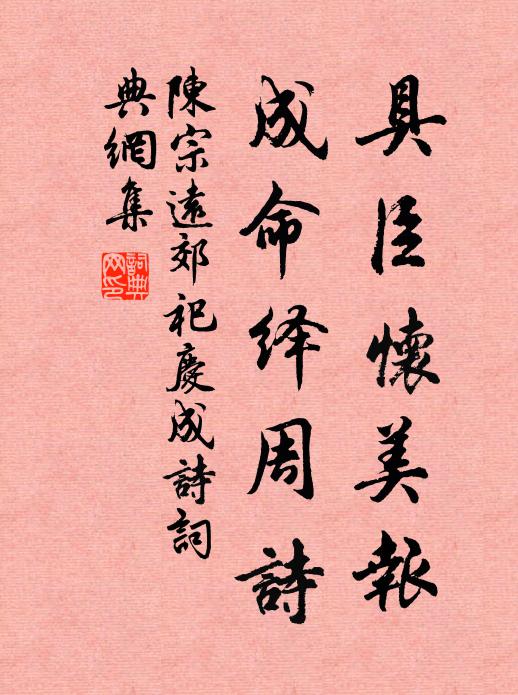 具臣懷美報
成命绎周詩
陳宗遠郊祀慶成詩詞
典網集
詞典網印